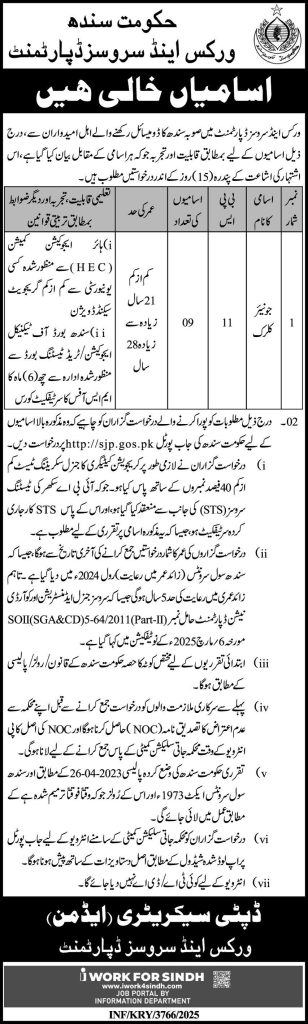 حکومت سندھ
ورکس اینڈ سروسز ڈپارٹمنٹ
اسامیاں خالی ہیں
ورکس اینڈ سروسز ڈپارٹمنٹ میں صوبہ سندھ کا ڈومیسائل رکھنے والے اہل امیدواران سے، درج
ذیل اسامیوں کے لیے بمطابق قابلیت اور تجربہ جو کہ ہر اسامی کے مقابل بیان کیا گیا ہے، اس
اشتہار کی اشاعت کے پندرہ (15) روز کے اندر درخواستیں مطلوب ہیں۔
نمبر شمار
اسامی کا نام
بی پی ایس
اسامیوں کی تعداد
عمر کی حد
تعلیمی قابلیت، تجربہ اور دیگر ضوابط بمطابق تربیتی قوانین
1
جونیئر کلرک
11
09
کم از کم 21 سال زیادہ سے زیادہ 28 سال
i) ہائر ایجوکیشن کمیشن
(HEC) سے منظور شدہ کسی
یونیورسٹی سے کم از کم گریجویٹ
سیکنڈ ڈویژن
ii) سندھ بورڈ آف ٹیکنیکل
ایجوکیشن/ٹریڈ ٹیسٹنگ بورڈ سے
منظور شدہ ادارہ سے چھ (6) ماہ کا
ایم ایس آفس کا سرٹیفکیٹ کورس
02۔ درج ذیل مطلوبات کو پورا کرنے والے درخواست گزاران کو چاہیے کہ وہ مذکورہ بالا اسامیوں
کے لیے حکومت سندھ کی جاب پورٹل http://sjp.gos.pk پر درخواست دیں۔
i درخواست گزاران نے لازمی طور پر گریجویشن کیٹیگری کا جنرل اسکریننگ ٹیسٹ کم
از کم 40 فیصد نمبروں کے ساتھ پاس کیا ہو۔ جو کہ آئی بی اے سکھر کی ٹیسٹنگ
سروسز (STS) کی جانب سے منعقد کیا گیا ہو، اور اس کے پاس STS کا جاری
کردہ سرٹیفکیٹ ہو، جیسا کہ یہ مذکورہ اسامی پر تقرری کے لیے مطلوب ہے۔
ii درخواست گزاروں کی عمر کا شمار درخواستیں جمع کرانے کی آخری تاریخ سے ہوگا جیسا کہ
سندھ سول سرونٹس (زائد عمر میں رعایت) رولز 2024ء میں دیا گیا ہے۔ تاہم
زائد عمری میں رعایت کی حد 5 سال ہوگی جیسا کہ سروسز جنرل ایڈمنسٹریشن اور کوآرڈی
نیشن ڈپارٹمنٹ حامل نمبر SOII(SGA&CD)5-64/2011(Part-II)
مورخہ 6 مارچ 2025ء کے نوٹیفکیشن میں کہا گیا ہے۔
iii ابتدائی تقرریوں کے لیے مختص کوٹہ کا حصہ حکومت سندھ کے قانون/رولز/پالیسی کے
مطابق ہوگا۔
iv پہلے سے سرکاری ملازمت والوں کو درخواست جمع کرانے سے قبل اپنے محکمہ سے
عدم اعتراض کا تصدیق نامہ (NOC) حاصل کرنا ہوگا اور NOC کی اصل کاپی
انٹرویو کے وقت محکمہ جاتی سلیکشن کمیٹی کے پاس جمع کرانے کے لیے لانا ہوگی۔
v تقرری حکومت سندھ کی وضع کردہ پالیسی 26-04-2023 کے مطابق اور سندھ
سول سرونٹس ایکٹ 1973ء اور اس کے رولز جو کہ وقتاً فوقتاً ترمیم شدہ ہے کے
مطابق عمل میں لائی جائے گی۔
vi درخواست گزاران کو محکمہ جاتی سلیکشن کمیٹی کے سامنے انٹرویو کے لیے جاب پورٹل
پر اپ لوڈ شدہ شیڈول کے مطابق اصل دستاویزات کے ساتھ پیش ہونا ہوگا۔
vii انٹرویو کے لیے کوئی ٹی اے/ڈی اے نہیں دیا جائے گا۔
ڈپٹی سیکریٹری (ایڈمن)
ورکس اینڈ سروسز ڈپارٹمنٹ
i WORK FOR SINDH
www.iwork4sindh.com
JOB PORTAL BY
INFORMATION DEPARTMENT
INF/KRY/3766/2025